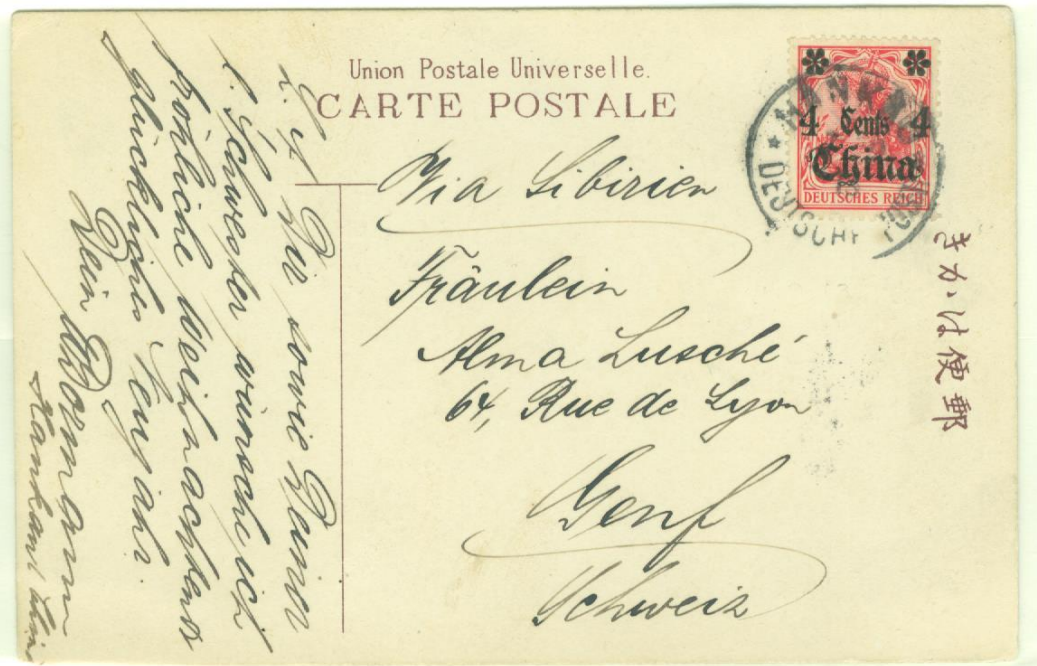 Union Postale Universelle.
CARTE POSTALE
4 Cents 4
China
DEUTSCHES REICH
DEUTSCHE POST
Via Sibirien
Fräulein
Alma Lusché
64, Rue de Lyon
Genf
Schweiz
郵便はかき
Dir sowie Deiner
l. Schwester wünsche ich
fröhliche Weihnachten &
glückliches Neujahr.
Dein
Hankau China